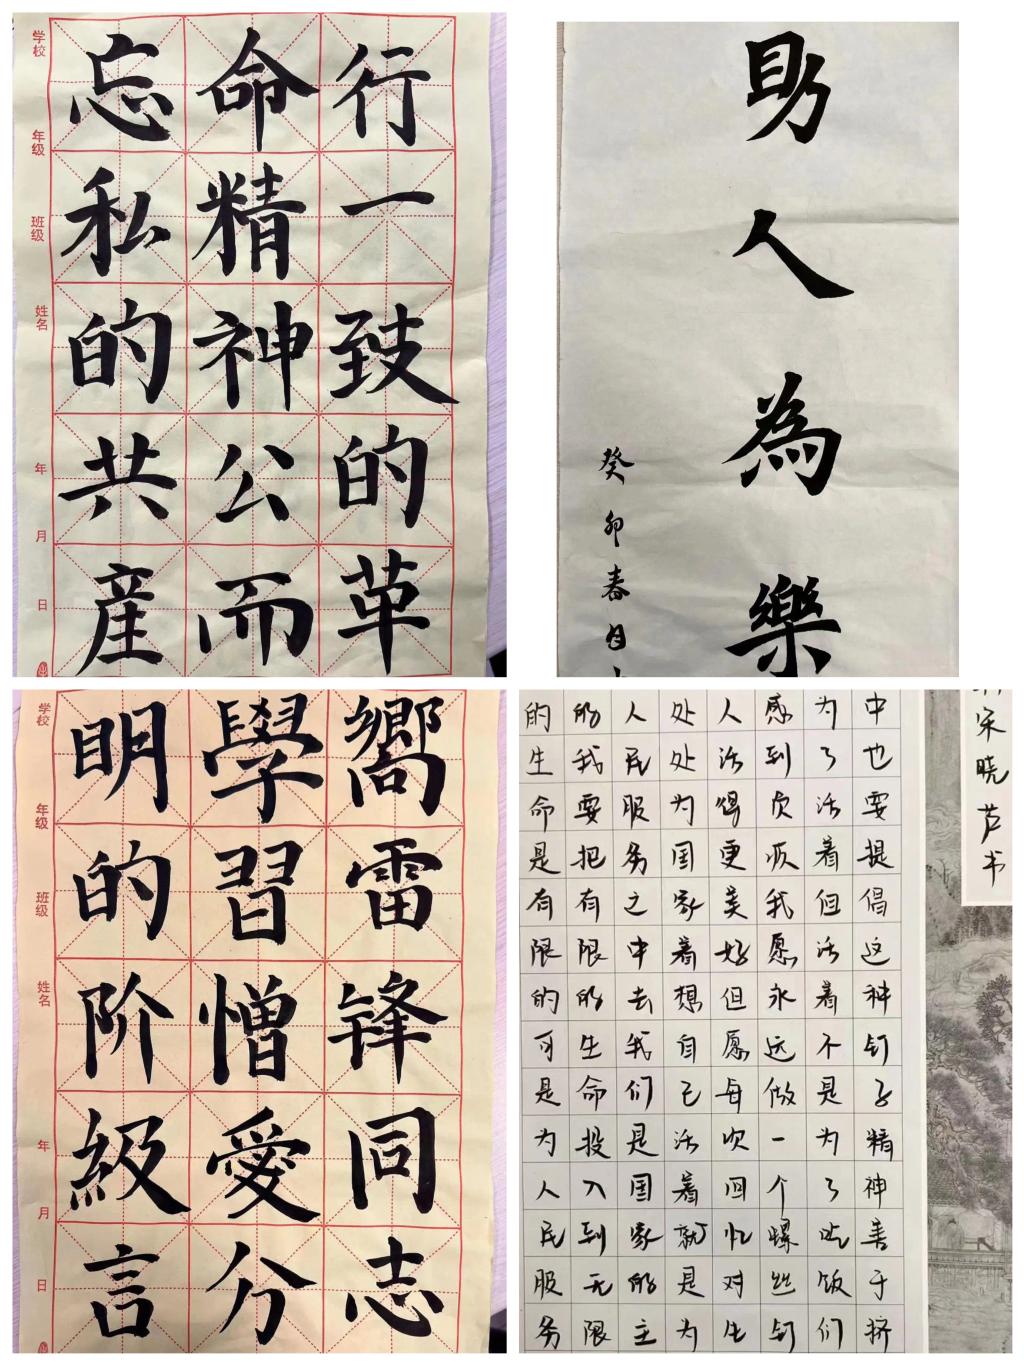 行一致的革
命精神公而
忘私的共産
学校 年级 班级 姓名 年 月 日
助人為樂
癸卯春日
嚮雷锋同志
學習憎愛分
明的阶級言
学校 年级 班级 姓名 年 月 日
宋晓芦书
中也要提倡这种钉子精神善于挤
为了活着但活着不是为了吃饭们
感到我愿永远做一个螺丝钉
人活得更美好但愿每次回忆对生
处处为国家着想自己活着就是为
人民服务之中去我们是国家的主
的我要把有限的生命投入到无限
的生命是有限的可是为人民服务